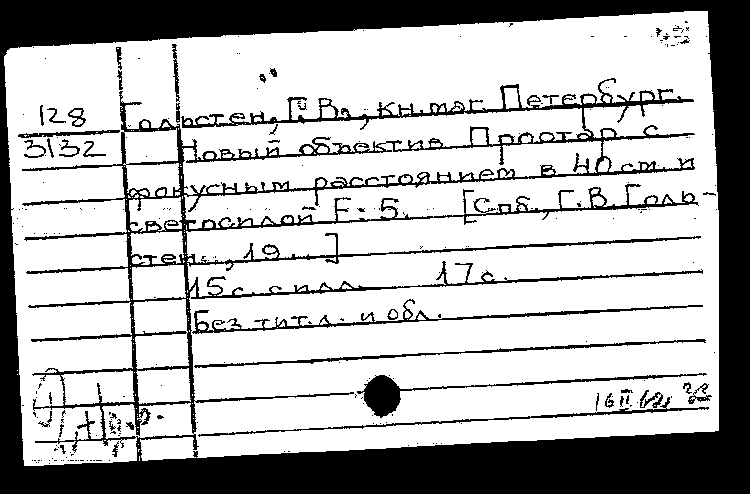 128 Гольстен, Г. В., кн. маг. Петербург.
3132 Новый объектив Простар с
фокусным расстоянием в 40 см. и
светосилой F: 5. [Спб., Г. В. Голь-
стен..., 19...]
15 с. с илл. 17 с.
Без тит. л. и обл.
16 II 62